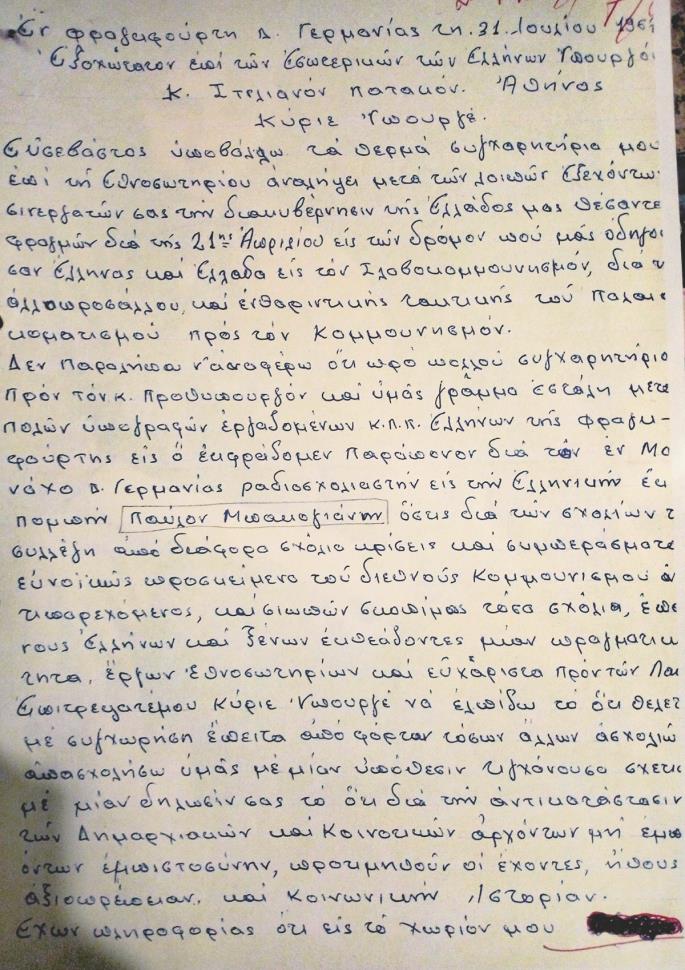 Ἐν φραγκφούρτη Δ. Γερμανίας τη. 31. Ιουλίου 196
Ἐξοχώτατον ἐπί τῶν Ἐσωτερικῶν τῶν Ἑλλήνων Ὑπουργό
Κ. Στελιανόν Πατακόν. Ἀθήνας
Κύριε Ὑπουργέ.
Εὐσεβάστος ὑποβάλλω τά θερμά συγχαρητήρια μου
ἐπί τῆ Ἐθνοσωτηρίου ἀναλήψει μετά τῶν λοιπῶν Ἐξεχόντω
σινεργατῶν σας τήν διακυβέρνησιν τῆς Ἑλλάδος μας θέσαντε
φραγμών διά τῆς 21ης Ἀπριλίου εἰς τῶν δρόμον πού μᾶς ὁδηγοῦ
σαν Ἕλληνας καί Ἑλλάδα εἰς τόν Σλοβοκομμουνησμόν, διά τ
ἀλλοπροσάλλου, καί ἐνθαρινtικῆς τακτικῆς τοῦ Παλαι
κοματισμοῦ πρός τόν Κομμουνησμόν.
Δεν παραλήπω ν'ἀναφέρω ὅτι πρό πολλοῦ συγχαρητήριο
πρόν τόν κ. Προθυπουργόν καί ὑμᾶς γρᾶμμα ἐστάλη μετά
πολῶν ὑπογραφῶν ἐργαδομένων κ.π.π. Ἑλλήνων τῆς φραγκ-
φούρτης εἰς ὅ ἐκφράδομεν παράπονον διά τόν ἐν Μο
νάχο Δ. Γερμανίας ραδιοσχολιαστήν εἰς τήν Ἑλληνικήν ἐκ
πομπήν Παῦλον Μπακογιάνην ὅστις διά τῶν σχολίων τ
συλλέγη ἀπό διάφορα σχόλια κρίσεις καί συμπεράσματα
εὐνοϊκῶς προσκείμενα τοῦ διεθνοῦς Κομμουνισμοῦ ἀ
τιπαρεχόμενος, καί σιωπῶν σκοπίμως τόσα σχόλια, ἐπε
νους Ἑλλήνων καί ξένων ἐκθεάδοντες μίαν πραγματικ
τητα, ἔργων Ἐθνοσωτηρίων καί εὐχάριστα πρόν τῶν Λαι
Ἐπιτρεψατέμου Κύριε Ὑπουργέ νά ἐλπίδω τό ὅτι θελετ
μέ συγχωρήση ἔπειτα ἀπό φόρτον τόσων ἄλλων ἀσχολιῶ
ἀπασχολήσω ὑμᾶς μέ μίαν ὑπόθεσιν τιγχάνουσα σχετικ
μέ μίαν δηλωσίν σας τό ὅτι διά τήν ἀντικατάστασιν
τῶν Δημαρχιακῶν καί Κοινοτικῶν ἀρχόντων μή ἐμπν
όντων ἐμπιστοσύνην, προτιμηθοῦν οἱ ἔχοντες, ἤθους
ἀξιοπρέπειαν. καί Κοινωνικήν Ἱστορίαν.
Ἐχων πληροφορίας ὅτι εἰς τό χωρίον μου